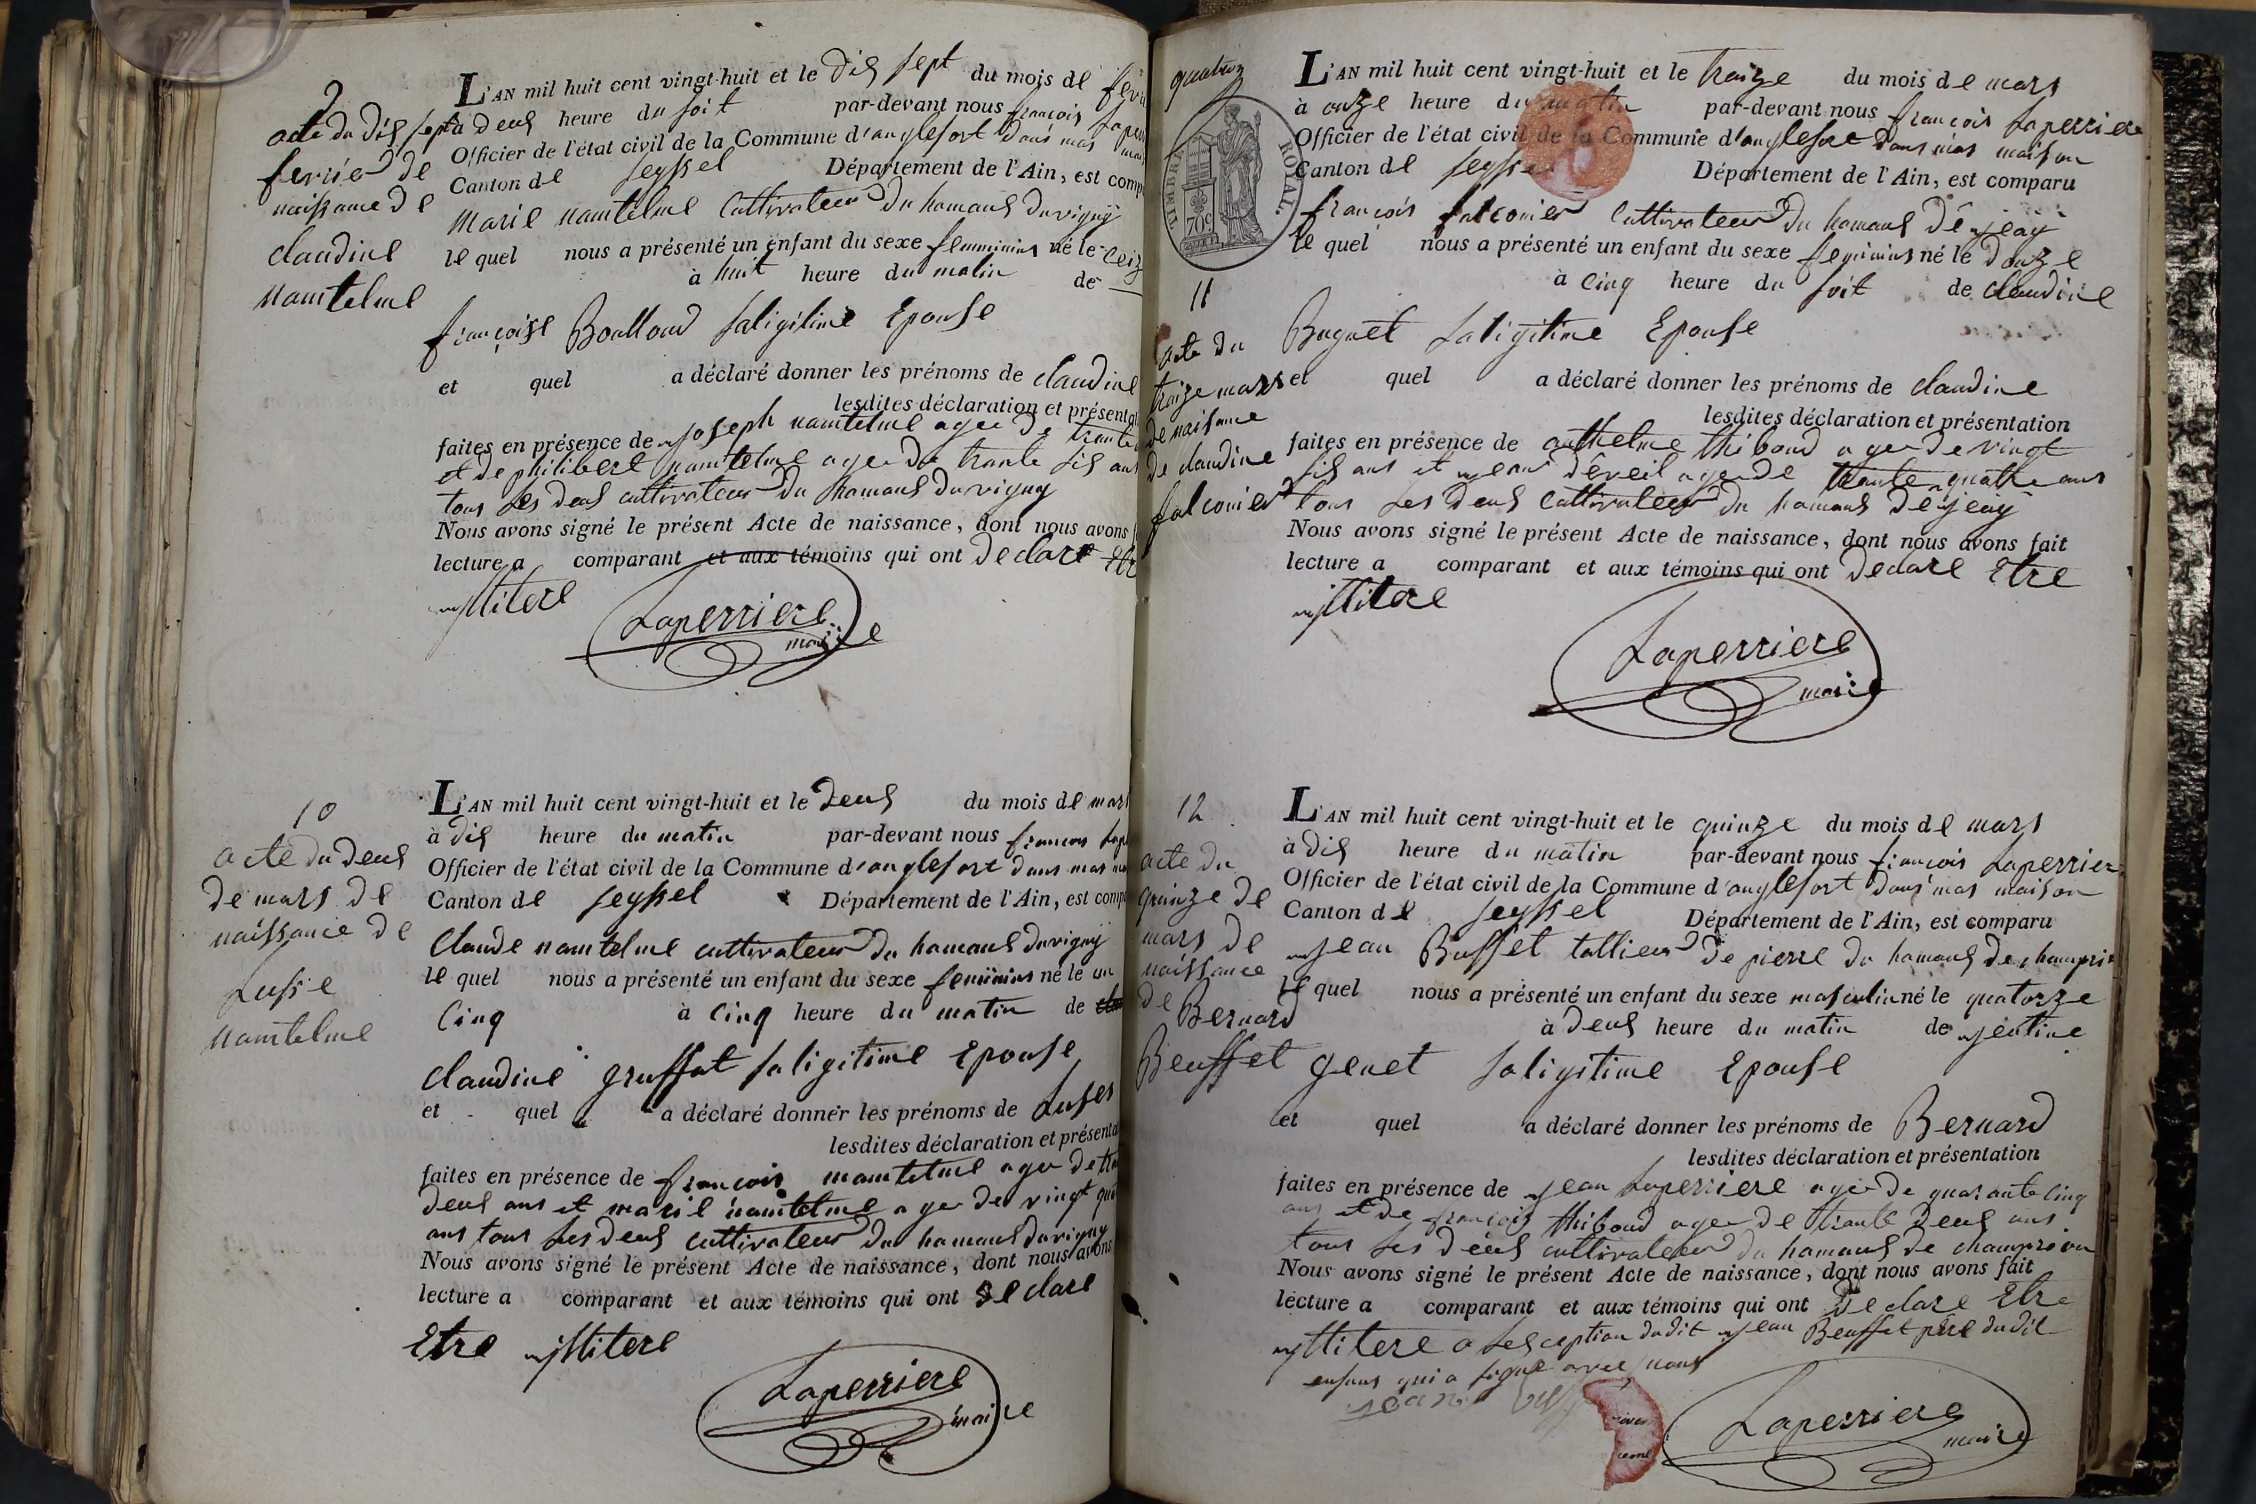 9
acte du dis sept
fevrier de
naissance de
claudine
namtelme
L'AN mil huit cent vingt-huit et le dis sept du mois de
à deus heure du soit par-devant nous francois
Officier de l'état civil de la Commune d'anglefort dans mas
Canton de seyssel Département de l'Ain, est
marie namtelme Cultivateur du hamaus duvigny
le quel nous a présenté un enfant du sexe femminins né le
à huit heure du matin de
françoise Boulloud saligitime Epouse
et quel a déclaré donner les prénoms de claudine
lesdites déclaration et
faites en présence de joseph namtelme agee de
et de philibert namtelme agee de trante sis ans
tous les deus cultivateur du hamaus duvigny
Nous avons signé le présent Acte de naissance, dont nous avons
lecture a comparant et aux témoins qui ont declare
jllitere
Laperriere
maire
10
acte du deus
de mars de
naissance de
Lusie
namtelme
L'AN mil huit cent vingt-huit et le deus du mois de mars
à dis heure du matin par-devant nous francois
Officier de l'état civil de la Commune d'anglefort dans mas
Canton de seyssel Département de l'Ain, est
Claude namtelme cultivateur du hamaus duvigny
le quel nous a présenté un enfant du sexe feminins né le un
Cinq à cinq heure du matin de
claudine gruffat saligitime Epouse
et quel a déclaré donner les prénoms de
lesdites déclaration et
faites en présence de francois namtelme agee de
deus ans et marie namtelme agee de vingt
ans tous les deus cultivateur du hamaus duvigny
Nous avons signé le présent Acte de naissance, dont nous avons
lecture a comparant et aux témoins qui ont declare
Etre jllitere
Laperriere
maire
quatroz
TIMBRE ROYAL.
70c
11
acte du
traize mars
de naisance
de claudine
falconier
L'AN mil huit cent vingt-huit et le traize du mois de mars
à onze heure du matin par-devant nous francois Laperriere
Officier de l'état civil de la Commune d'anglefort dans mas maison
Canton de seyssel Département de l'Ain, est comparu
francois falconier Cultivateur du hamaus de jeay
le quel nous a présenté un enfant du sexe feminins né le douze
à cinq heure du soit de claudine
Buguet saligitime Epouse
et quel a déclaré donner les prénoms de claudine
lesdites déclaration et présentation
faites en présence de anthelme thiboud agee de vingt
sis ans et jean deveil agee de trante quattre ans
tous les deus Cultivateur du hamaus de jeay
Nous avons signé le présent Acte de naissance, dont nous avons fait
lecture a comparant et aux témoins qui ont declare Etre
jllitere
Laperriere
maire
12
acte du
quinze de
mars de
naissance
de Bernard
Beuffet
L'AN mil huit cent vingt-huit et le quinze du mois de mars
à dis heure du matin par-devant nous francois Laperriere
Officier de l'état civil de la Commune d'anglefort dans mas maison
Canton de seyssel Département de l'Ain, est comparu
jean Buffet tallieur de pierre du hamaus de
le quel nous a présenté un enfant du sexe masculin né le quatorze
à deus heure du matin de jentine
genet saligitime Epouse
et quel a déclaré donner les prénoms de Bernard
lesdites déclaration et présentation
faites en présence de jean Laperriere agee de quarante cinq
ans et de francois thiboud agee de trante deus ans
tous les deus cultivateur du hamaus de champrion
Nous avons signé le présent Acte de naissance, dont nous avons fait
lecture a comparant et aux témoins qui ont declare Etre
jllitere a lesception dudit jean Beuffet père dudit
enfans qui a signe avec nous
jean
Laperriere
maire